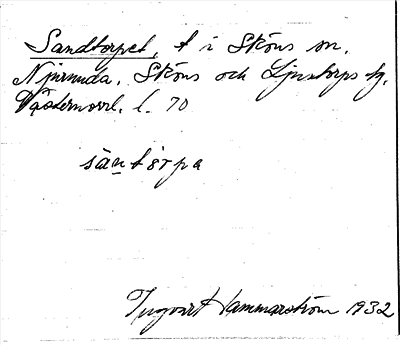 Sandtorpet, t i Sköns sn.
Njurunda, Sköns och Ljustorps tg,
Västernorrl. l. 70
säntòrpa
Ingvart Hammarström 1932